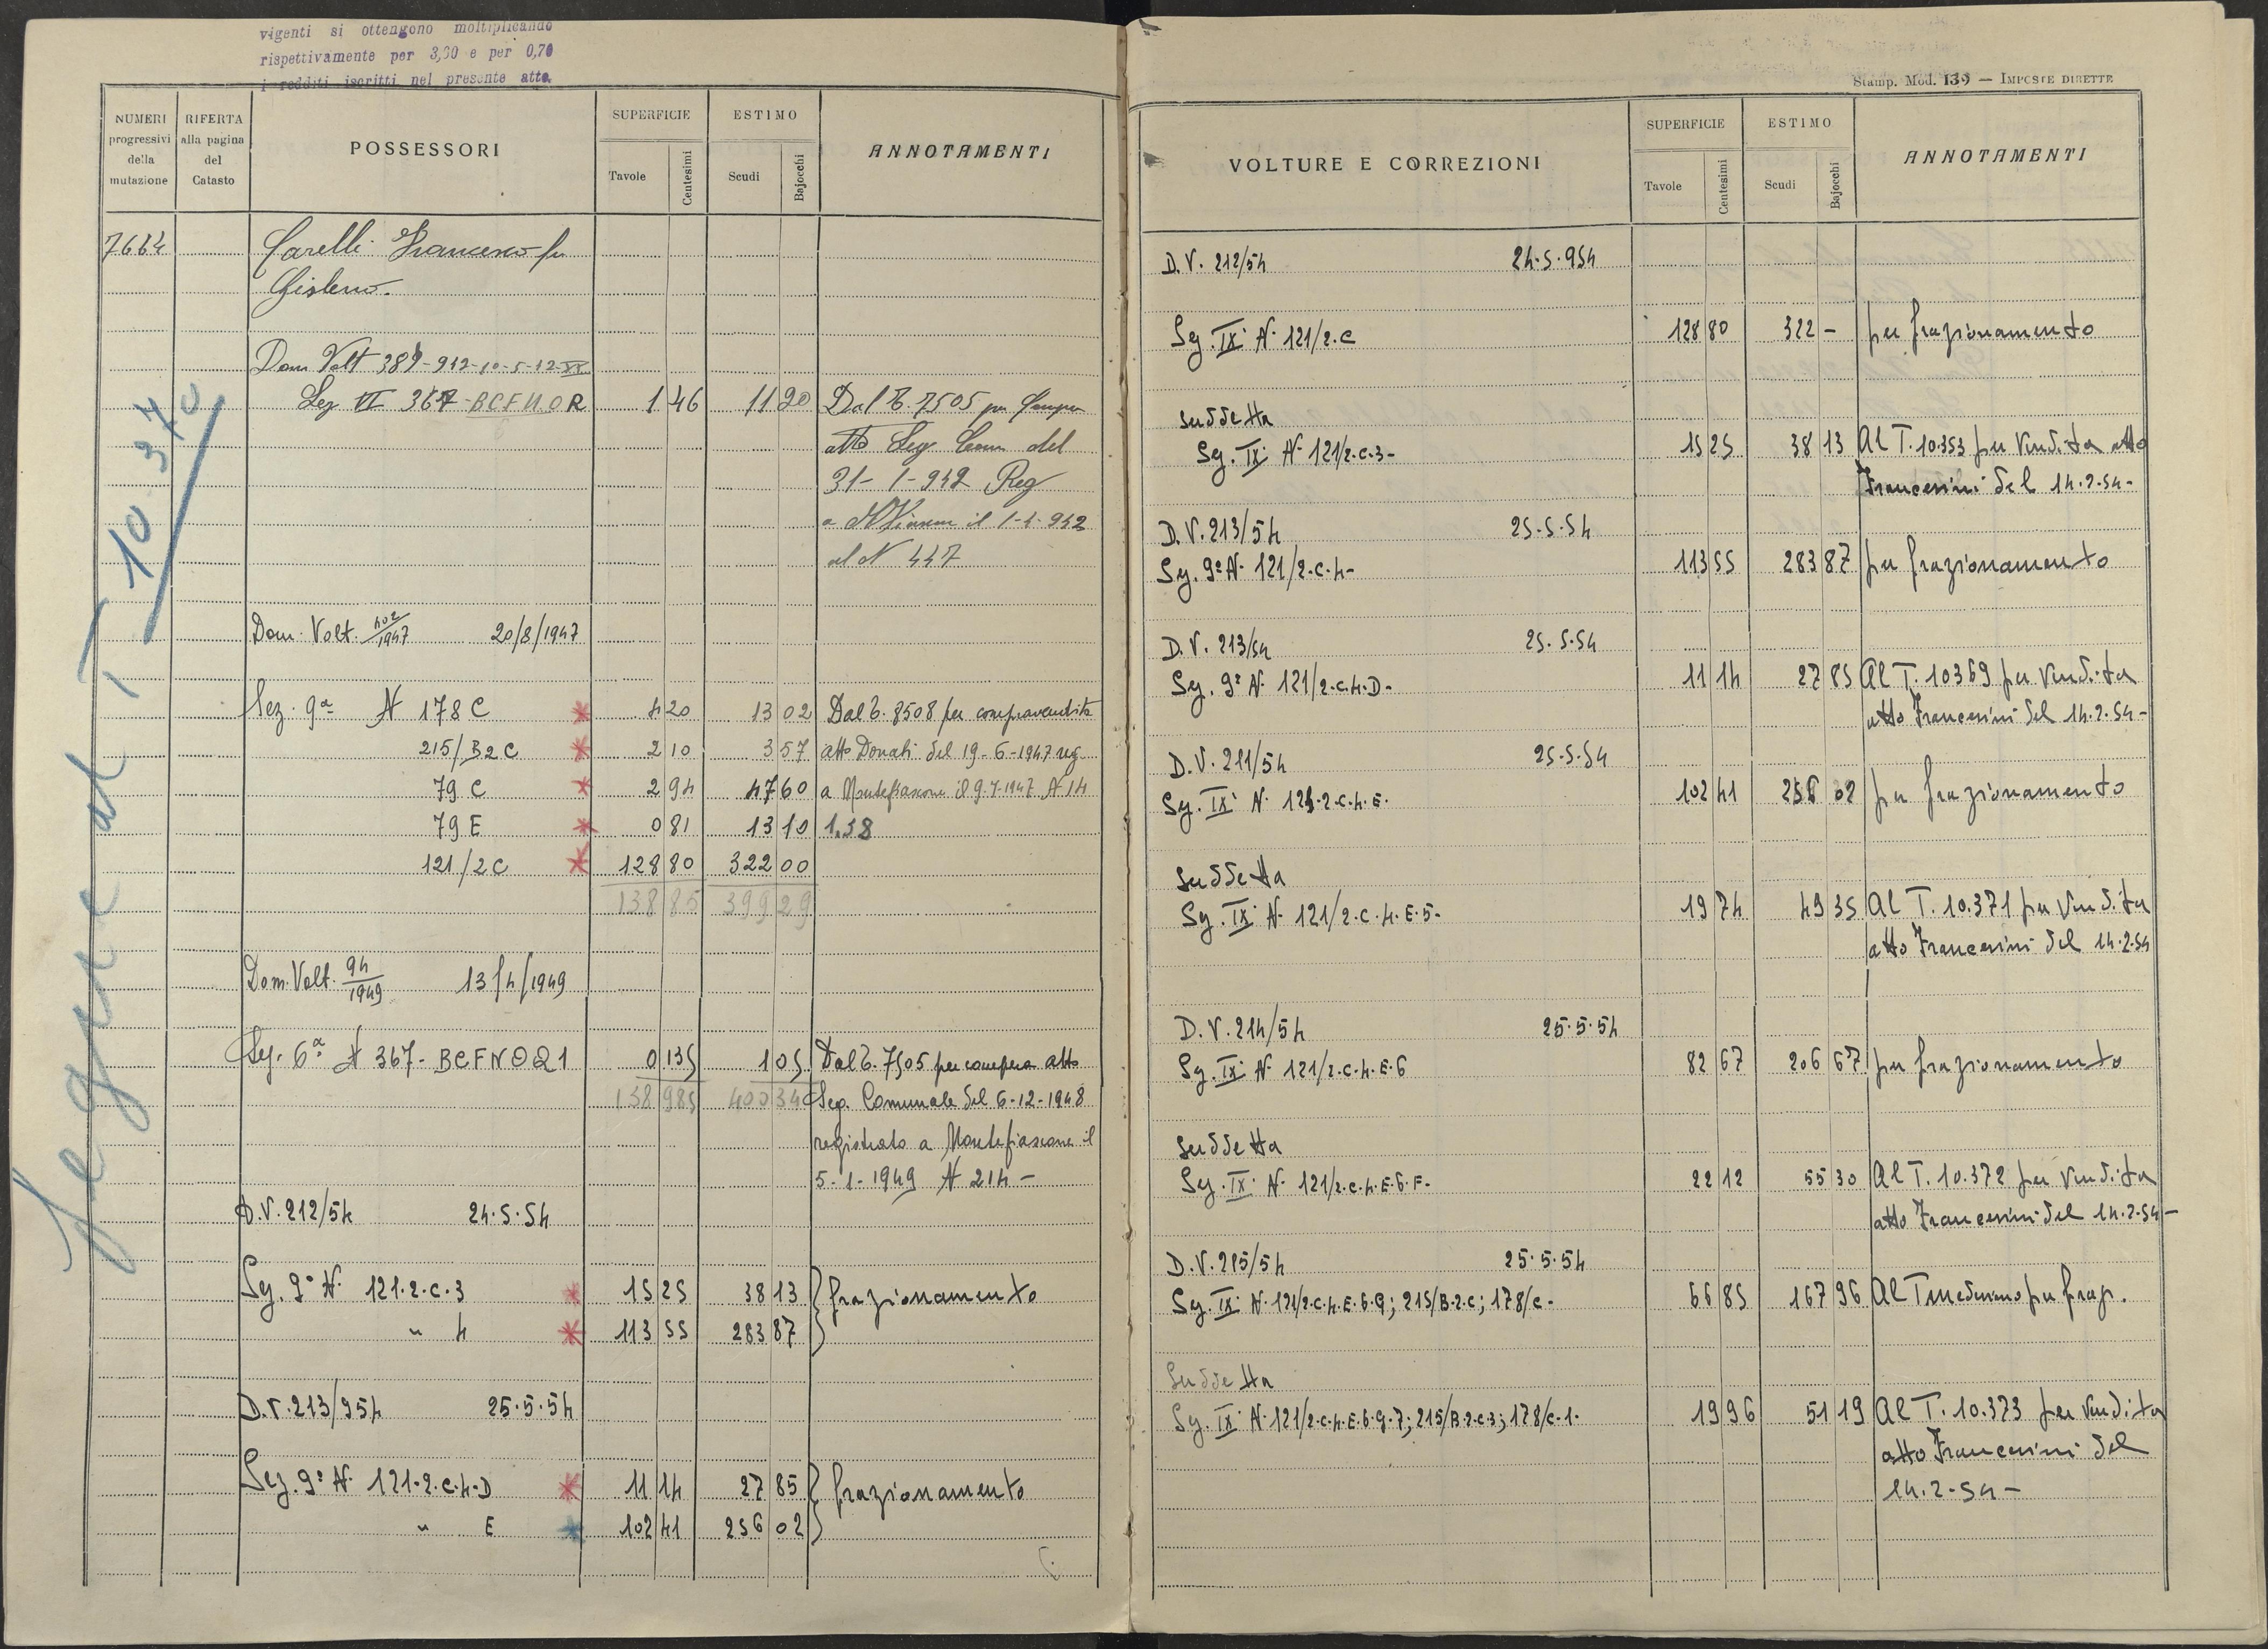 vigenti si ottengono moltiplicando
rispettivamente per 3,30 e per 0,70
i redditi iscritti nel presente atto.
NUMERI progressivi della mutazione
RIFERTA alla pagina del Catasto
POSSESSORI
SUPERFICIE
Tavole Centesimi
ESTIMO
Scudi Bajocchi
ANNOTAMENTI
Segue al T 10 370
7664 Carelli Francesco fu
Gisleno.
Dom Volt 389-942-10-5-42-XX
Sez VI 367-BCFNOR 1 46 11 20 Dal T. 7505 per
atto Seg. Com del
31-1-942 Reg
a il 942
al N 447
Dom. Volt. 402/1947 20/8/1947
Sez. 9ª N 178 C 4 20 13 02 Dal T. 8508 per compravendita
215/B2C 2 10 3 57 atto Donati del 19-6-1947 reg
79 C 2 94 47 60 a Montefiascone il 9-7-1947 N 14
79 E 0 81 13 10 1.38
121/2C 128 80 322 00
138 85 399 29
Dom. Volt. 94/1949 13/4/1949
Sez. 6ª N 367-BCFNOQ1 0 135 1 05 Dal T. 7505 per compera atto
138 985 400 34 Seg. Comunale del 6-12-1948
registrato a Montefiascone il
5-1-1949 N 214 -
D.V. 212/54 24.5.54
Sez. 9ª N. 121.2.C.3 15 25 38 13 frazionamento
" 4 113 55 283 87
D.V. 213/954 25.5.54
Sez. 9ª N. 121.2.C.4.D 11 14 27 85 frazionamento
" E 102 41 256 02
Stamp. Mod. 139 — IMPOSTE DIRETTE
VOLTURE E CORREZIONI
SUPERFICIE
Tavole Centesimi
ESTIMO
Scudi Bajocchi
ANNOTAMENTI
D.V. 212/54 24.5.954
Sez. IX N. 121/2.C 128 80 322 - per frazionamento
Suddetta
Sez. IX N. 121/2.C.3- 15 25 38 13 Al T. 10.353 per vendita atto
Francesini del 14.2.54-
D.V. 213/54 25.5.54
Sez. 9ª N. 121/2.C.4- 113 55 283 87 per frazionamento
D.V. 213/54 25.5.54
Sez. 9ª N. 121/2.C.4.D- 11 14 27 85 Al T. 10369 per vendita
atto Francesini del 14.2.54-
D.V. 211/54 25.5.54
Sez. IX N. 121.2.C.4.E. 102 41 256 02 per frazionamento
Suddetta
Sez. IX N. 121/2.C.4.E.5- 19 74 49 35 Al T. 10.371 per vendita
atto Francesini del 14.2.54
D.V. 214/54 25.5.54
Sez. IX N. 121/2.C.4.E.6 82 67 206 67 per frazionamento
Suddetta
Sez. IX N. 121/2.C.4.E.6.F- 22 12 55 30 Al T. 10.372 per vendita
atto Francesini del 14.2.54-
D.V. 215/54 25.5.54
Sez. IX N. 121/2.C.4.E.6.G; 215/B.2.C; 178/C- 66 85 167 96 Al T medesimo per fraz.
Suddetta
Sez. IX N. 121/2.C.4.E.6.G.7; 215/B.2.C.3; 178/C.1. 19 96 51 19 Al T. 10.373 per vendita
atto Francesini del
14.2.54-